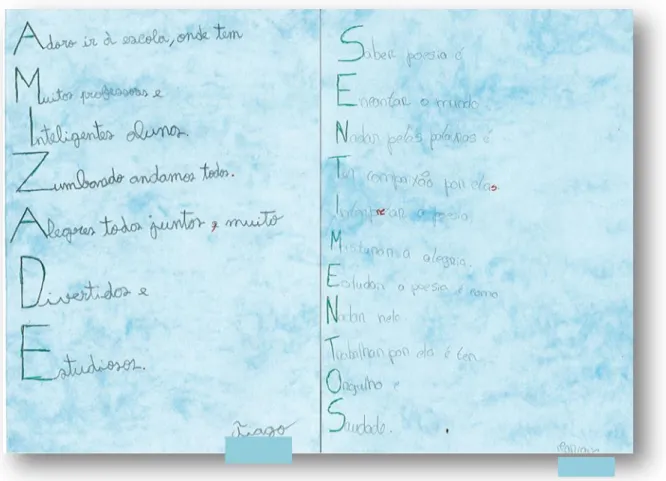 Adoro ir à escola, onde tem
Muitos professores e
Inteligentes alunos.
Zumbando andamos todos.
Alegres todos juntos, muito
Divertidos e
Estudiosos.
Tiago
Saber poesia é
Encontar o mundo.
Nadar pelas palavras é
Ter compaixão por elas.
Interpretar a poesia
Misturan-a alegria.
Estudar a poesia é como
Nadar nela
Trabalhar por ela é ter
Orgulho e
Saudade.